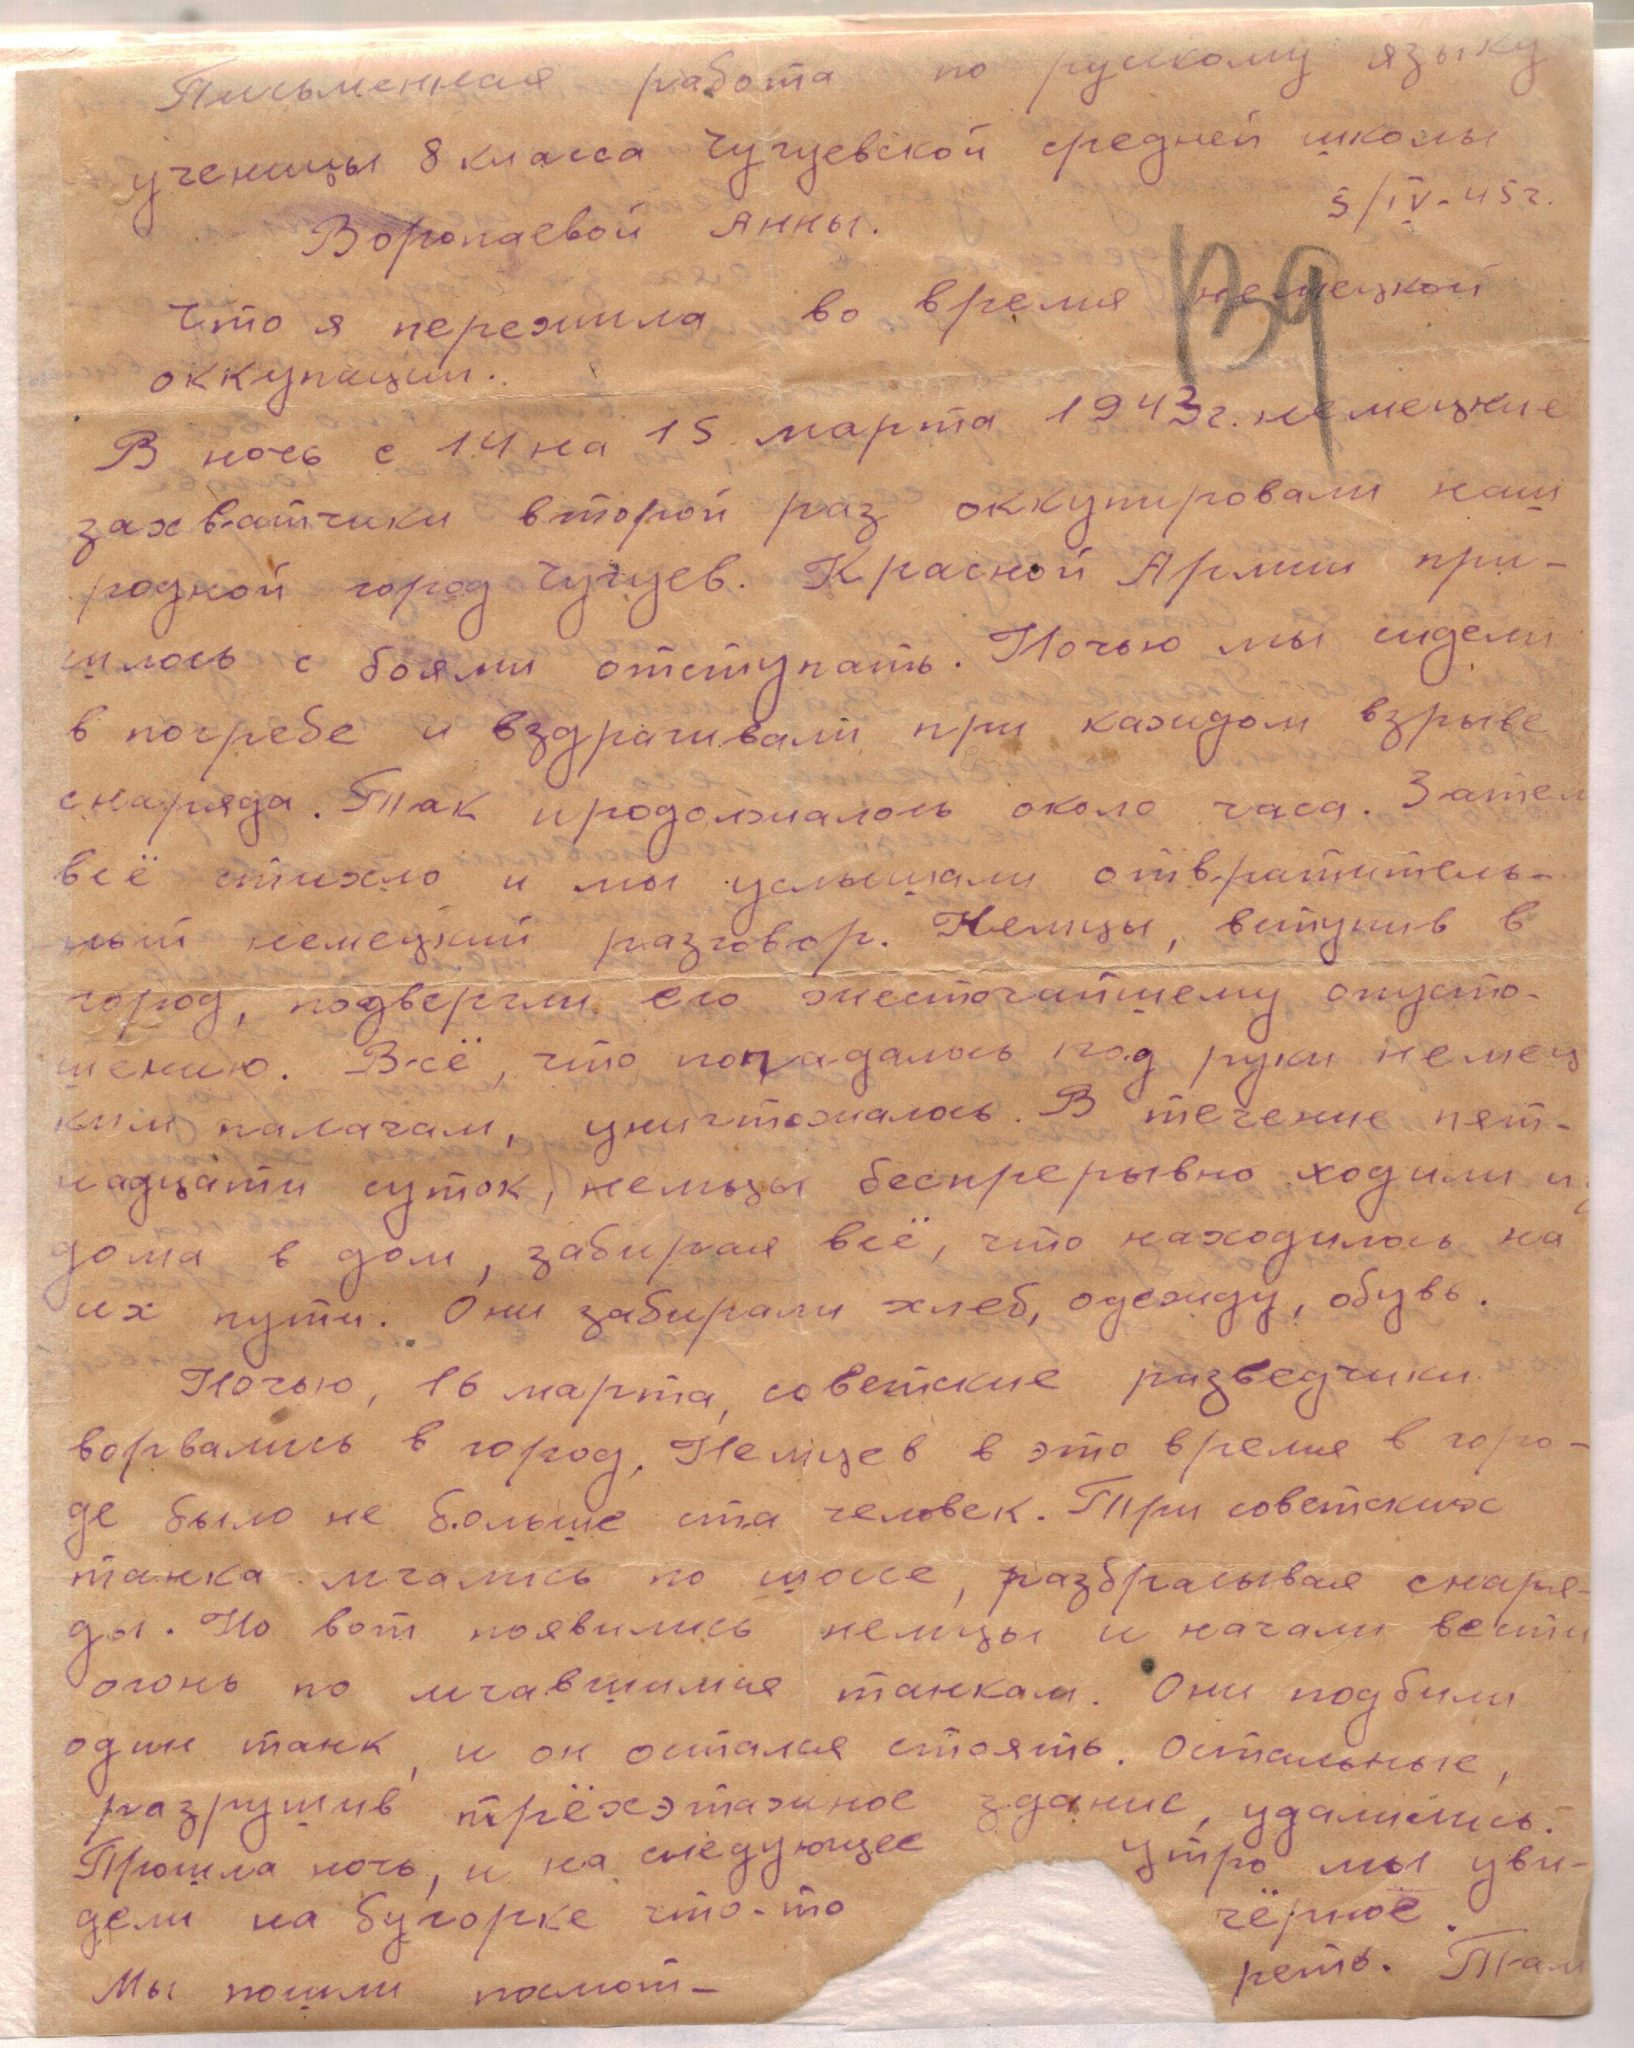 Письменная работа по русскому языку
ученицы 8 класса Чугуевской средней школы
5/IV-45г.
Воропаевой Анны.
139
Что я пережила во время немецкой
оккупации.
В ночь с 14 на 15 марта 1943г. немецкие
захватчики второй раз оккупировали наш
родной город Чугуев. Красной Армии при-
шлось с боями отступать. Ночью мы сидели
в погребе и вздрагивали при каждом взрыве
снаряда. Так продолжалось около часа. Затем
всё стихло и мы услышали отвратитель-
ный немецкий разговор. Немцы, вступив в
город, подвергли его жесточайшему опусто-
шению. Всё, что попадалось под руки немец
ким палачам, уничтожалось. В течение пят-
надцати суток, немцы беспрерывно ходили из
дома в дом, забирая всё, что находилось на
их пути. Они забирали хлеб, одежду, обувь.
Ночью, 16 марта, советские разведчики
ворвались в город. Немцев в это время в горо-
де было не больше ста человек. Три советских
танка мчались по шоссе, разбрасывая снаря-
ды. Но вот появились немцы и начали вести
огонь по мчавшимся танкам. Они подбили
один танк, и он остался стоять. Остальные,
разрушив трёхэтажное здание, удалились.
Прошла ночь, и на следующее утро мы уви-
дели на бугорке что-то чёрное.
Мы пошли посмот- реть. Там